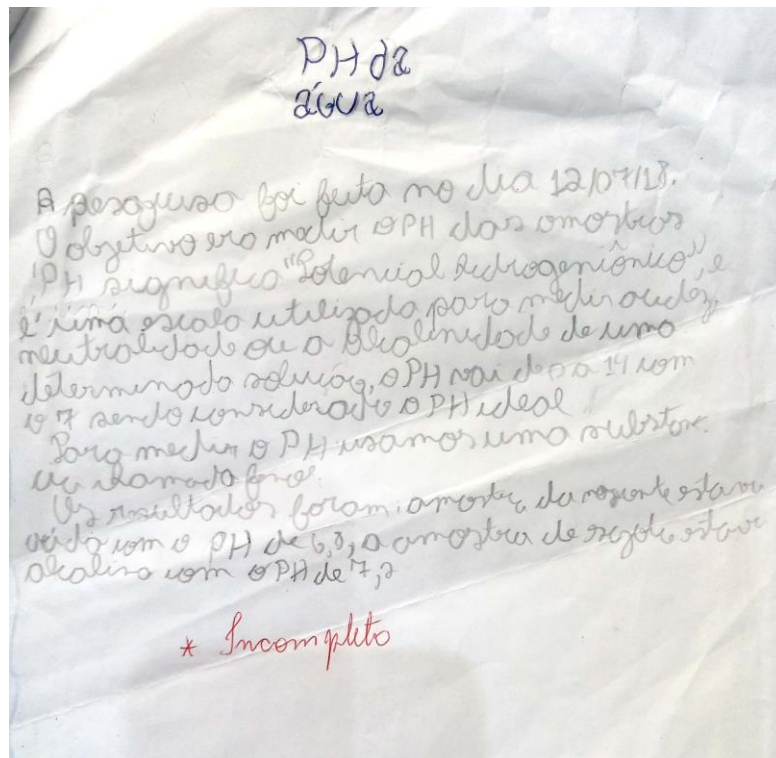 PH da
água
A pesquisa foi feita no dia 12/07/18.
O objetivo era medir o PH das amostras
"PH significa "Potencial hidrogeniônico", e
é uma escala utilizada para medir acidez,
neutralidade ou a Alcalinidade de uma
determinada solução, o PH vai de 0 a 14 com
o 7 sendo considerado o PH ideal
Para medir o PH usamos uma substan-
cia chamada
Os resultados foram: amostra da nascente estava
acida com o PH de 6,8, a amostra de esgoto estava
alcalina com o PH de 7,2
* Incompleto